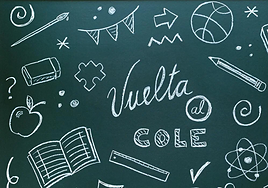 Vuelta
al
COLE